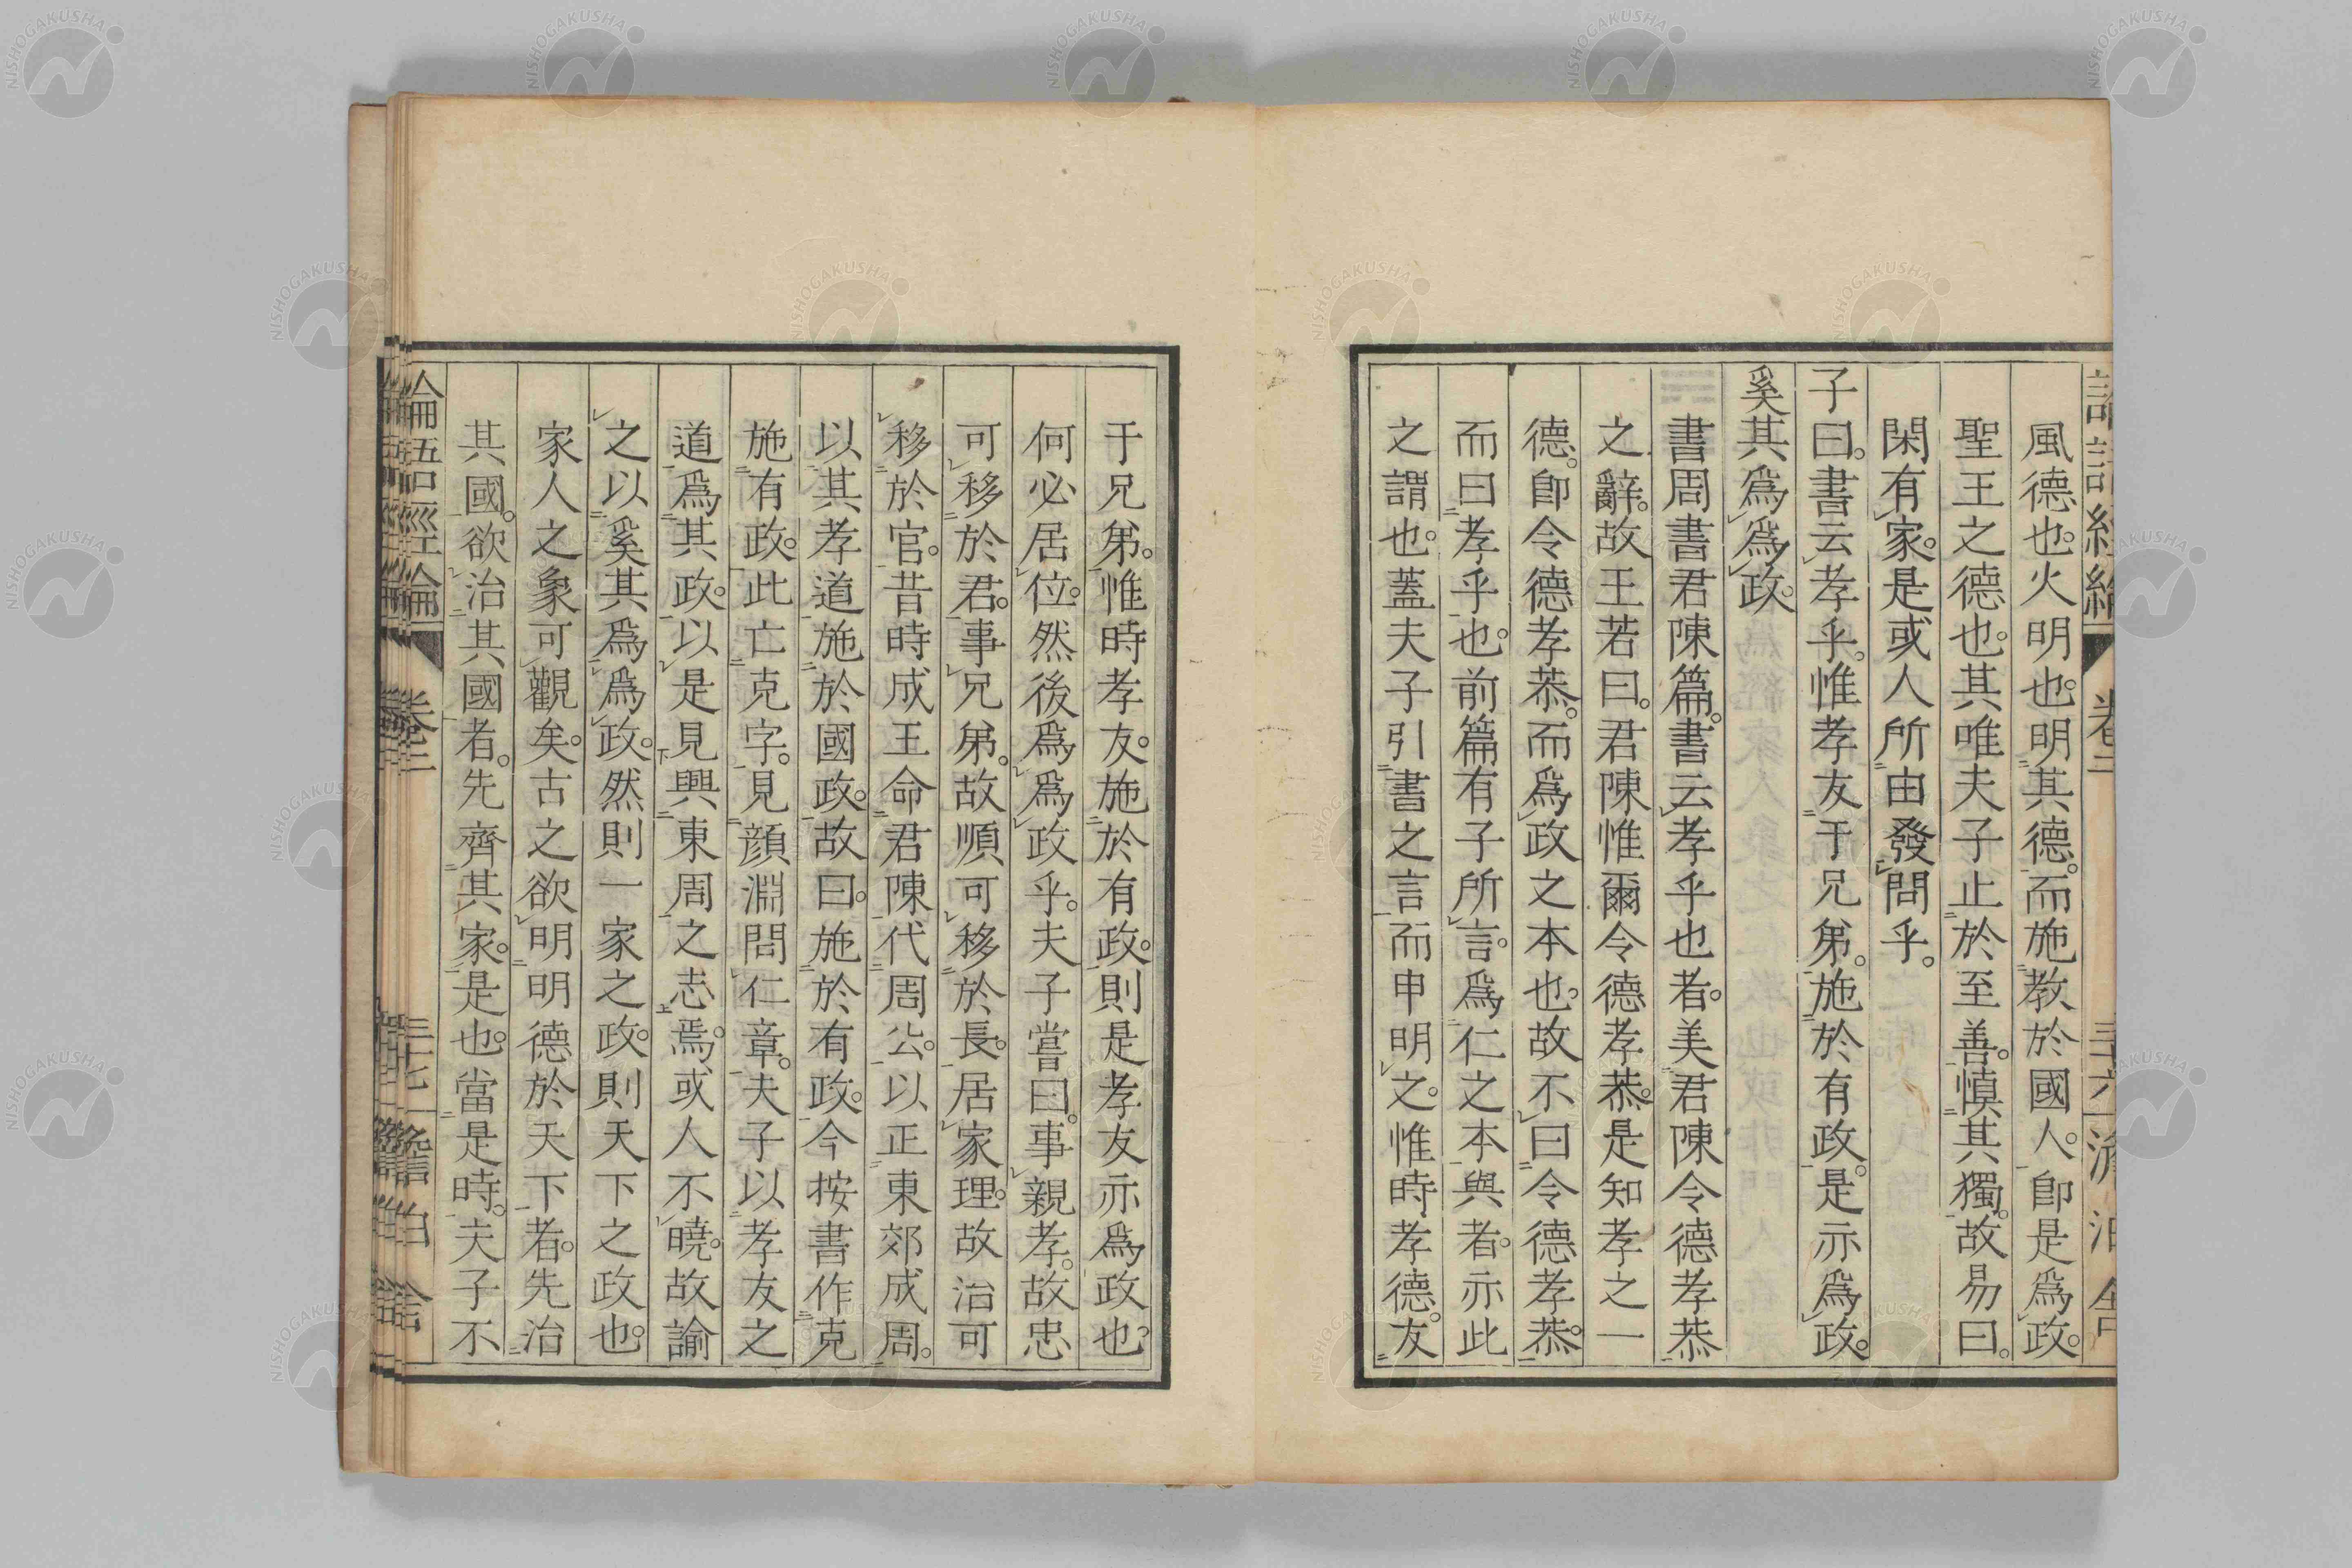 風德也。火明也。明其德。而施教於國人。卽是爲政。
聖王之德也。其唯夫子止於至善。愼其獨。故易曰。
閑有家。是或人所由發問乎。
子曰。書云孝乎。惟孝友于兄弟。施於有政。是亦爲政。
奚其爲爲政。
書周書君陳篇。書云孝乎也者。美君陳令德孝恭
之辭。故王若曰。君陳惟爾令德孝恭。是知孝之一
德。卽令德孝恭。而爲政之本也。故不曰令德孝恭。
而曰孝乎也。前篇有子所言。爲仁之本與者。亦此
之謂也。蓋夫子引書之言而申明之。惟時孝德。友
于兄弟。惟時孝友。施於有政。則是孝友亦爲政也。
何必居位。然後爲爲政乎。夫子嘗曰。事親孝。故忠
可移於君。事兄弟。故順可移於長。居家理。故治可
移於官。昔時成王命君陳代周公。以正東郊成周。
以其孝道施於國政。故曰。施於有政。今按書作克
施有政。此亡克字。見顔淵問仁章。夫子以孝友之
道爲其政。以是見興東周之志焉。或人不曉。故諭
之以奚其爲爲政。然則一家之政。則天下之政也。
家人之象可觀矣。古之欲明明德於天下者。先治
其國。欲治其國者。先齊其家。是也。當是時。夫子不
論語經論 卷二 三十七 澹泊舍